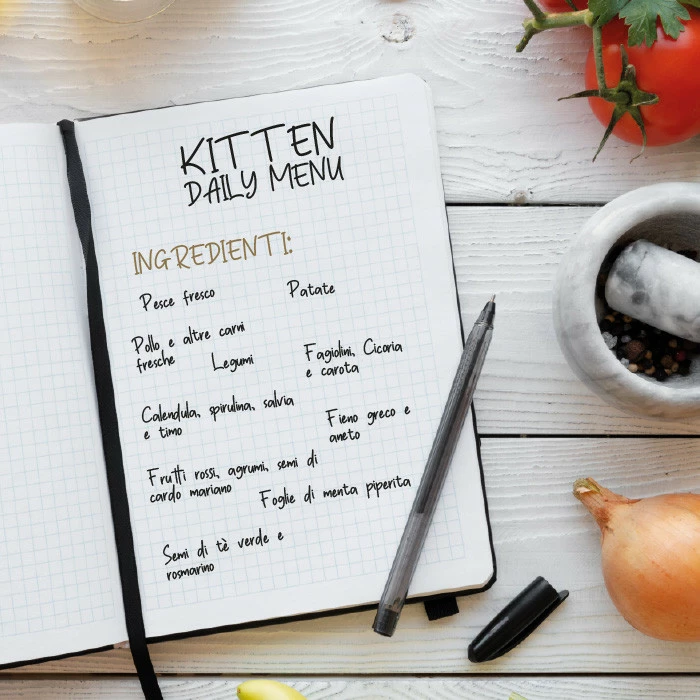 KITTEN
DAILY MENU
INGREDIENTI:
Pesce fresco
Patate
Pollo e altre carni
fresche
Legumi
Fagiolini, Cicoria
e carota
Calendula, spirulina, salvia
e timo
Fieno greco e
aneto
Frutti rossi, agrumi, semi di
cardo mariano
Foglie di menta piperita
Semi di tè verde e
rosmarino